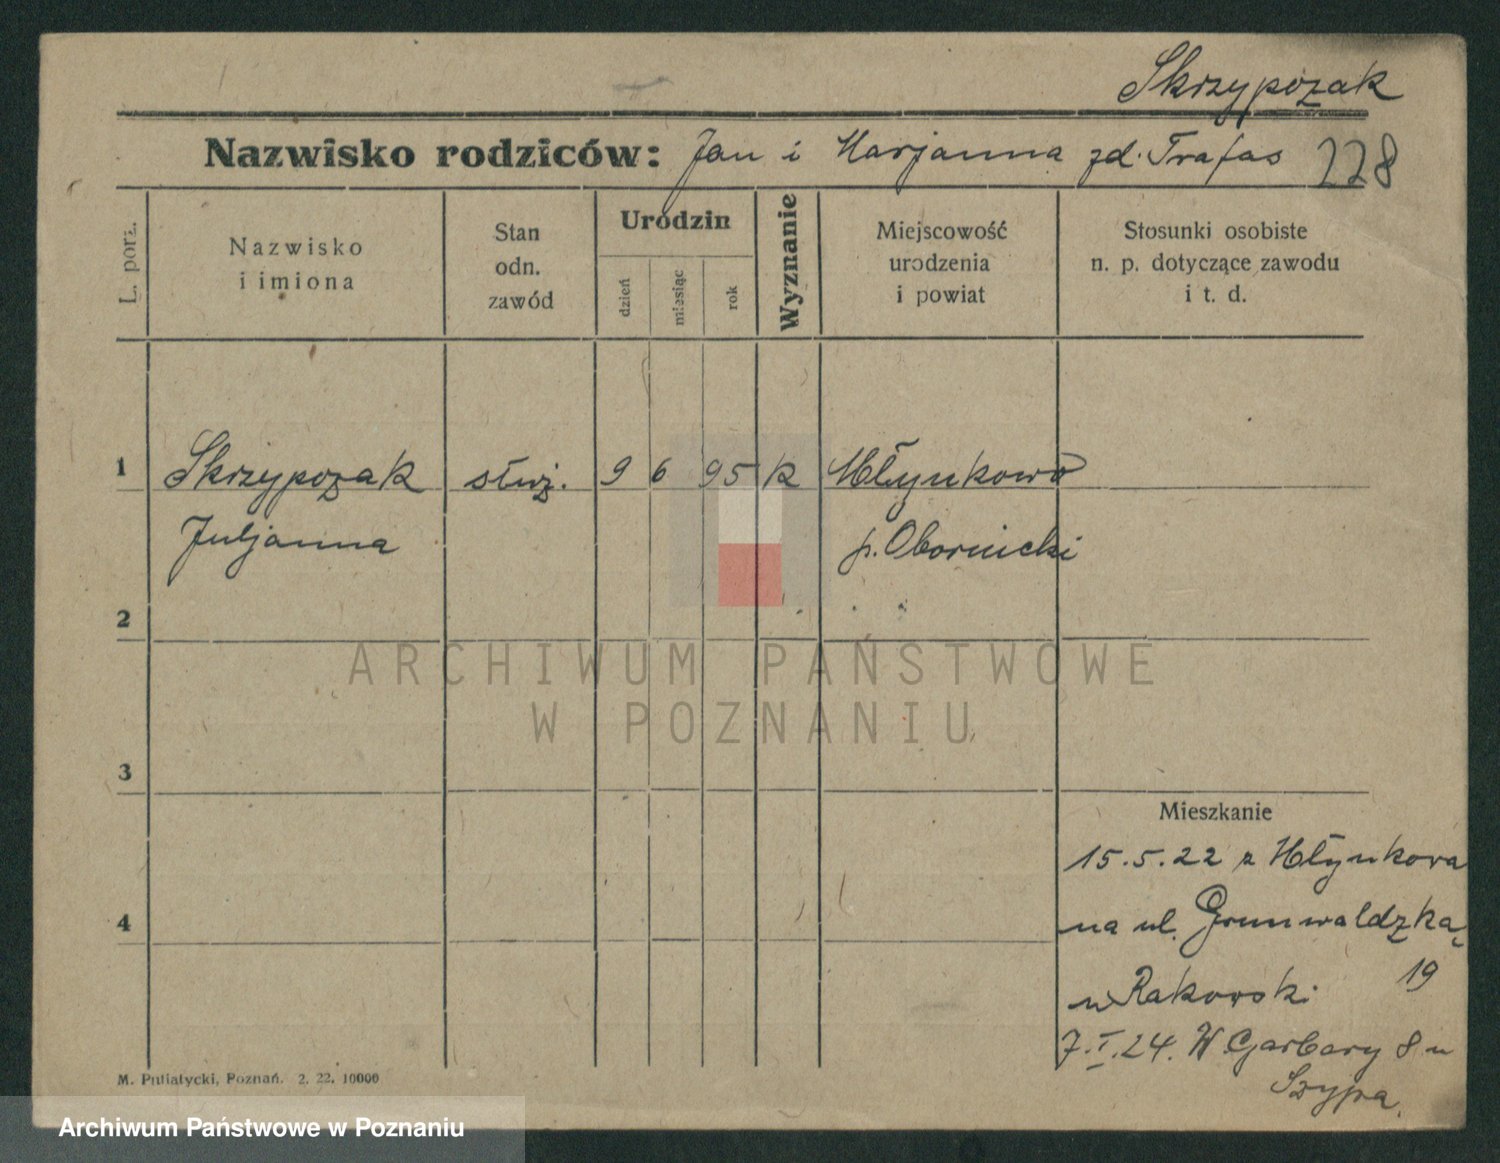 Skrzypczak
Nazwisko rodziców: Jan i Marjanna zd. Trafas 228
L. porz.
Nazwisko
i imiona
Stan
odn.
zawód
Urodzin
dzień
miesiąc
rok
Wyznanie
Miejscowość
urodzenia
i powiat
Stosunki osobiste
n. p. dotyczące zawodu
i t. d.
1 Skrzypczak służ. 9 6 95 k Młynkowo
Juljanna p. Obornicki
2
ARCHIWUM PAŃSTWOWE
W POZNANIU
3
Mieszkanie
15.5.22 z Młynkowa
4
na ul. Grunwaldzką
19
u Rakowski
7.I.24. W. Garbary 8 u
Szypa.
M. Putiatycki, Poznań. 2. 22. 10000
Archiwum Państwowe w Poznaniu